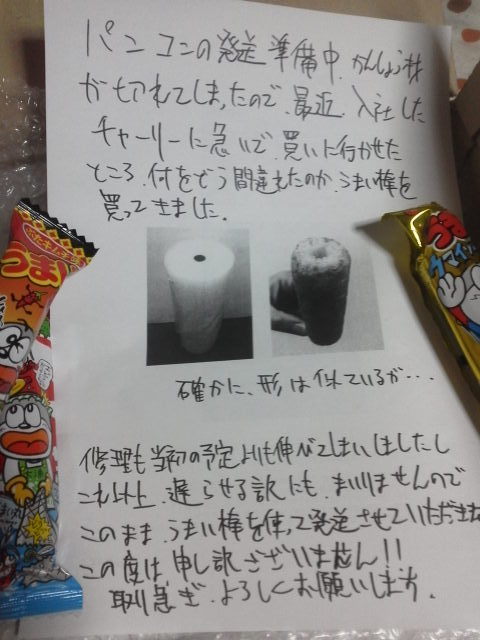 パソコンの発送準備中、かんしょう材
が切れてしまったので、最近、入社した
チャーリーに急いで、買いに行かせた
ところ、何をどう間違えたのか、うまい棒を
買ってきました。
うまい
確かに、形は似ているが・・・
修理も当初の予定よりも伸びてしまいましたし
これ以上、遅らせる訳にも、まいりませんので
このまま、うまい棒を使って発送させていただきま
この度は申し訳ございません!!
取り急ぎ、よろしくお願いします。